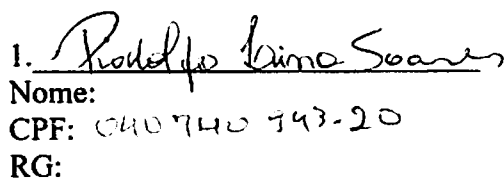 1. Rodolfo Lima Soares
Nome:
CPF: 040 740 943-20
RG: